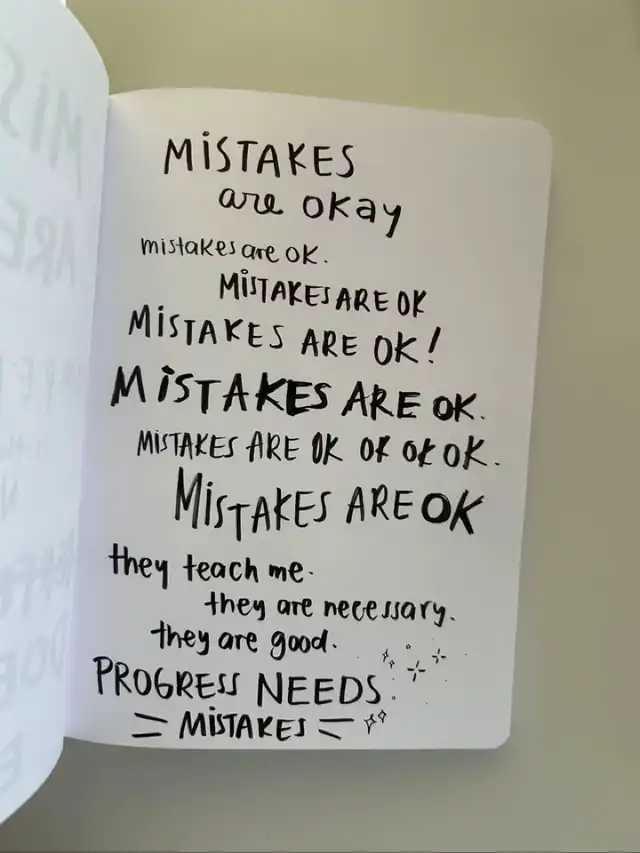 MiSTAKES
are okay
mistakes are OK.
MiSTAKES ARE OK
MiSTAKES ARE OK!
MiSTAKES ARE OK.
MiSTAKES ARE OK OK OK OK.
MiSTAKES ARE OK
they teach me.
they are necessary.
they are good.
PROGRESS NEEDS
MiSTAKES